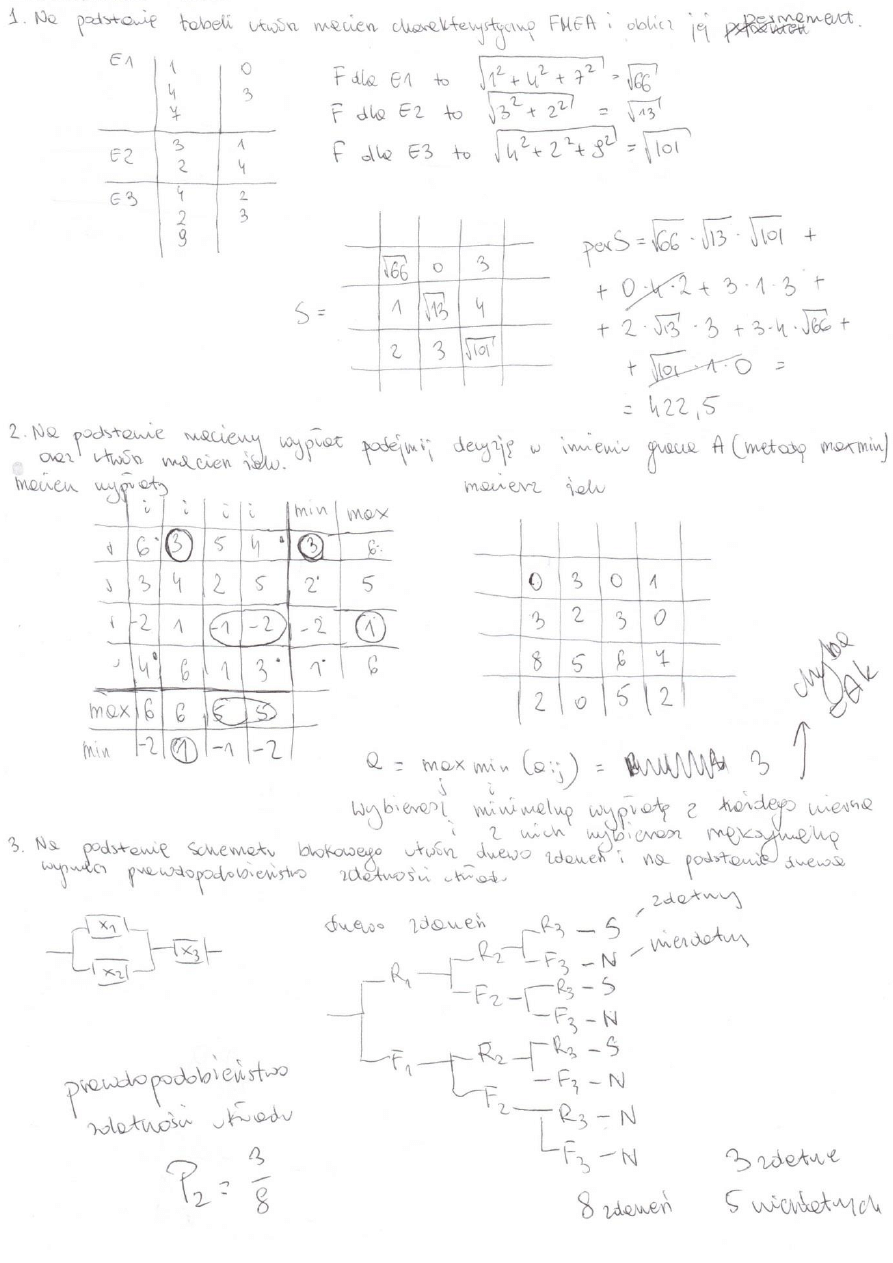 1. Na podstawie tabeli utwórz macierz charakterystyczną FMEA i oblicz jej permament.
E1 1 0
4 3
7
E2 3 1
2 4
E3 4 2
2 3
9
F dla E1 to √1²+4²+7² = √66
F dla E2 to √3²+2² = √13
F dla E3 to √4²+2²+9² = √101
S =
√66 0 3
1 √13 4
2 3 √101
perS = √66 · √13 · √101 +
+ 0·4·2 + 3·1·3 +
+ 2·√13·3 + 3·4·√66 +
+ √101·1·0 =
= 422,5
2. Na podstawie macierzy wypłat podejmij decyzję w imieniu gracza A (metodą maxmin)
oraz utwórz macierz żalu.
macierz wypłaty
macierz żalu
i i i i min max
6 3 5 4 3 6
3 4 2 5 2 5
-2 1 -1 -2 -2 1
4 6 1 3 1 6
max 6 6 5 5
min -2 1 -1 -2
0 3 0 1
3 2 3 0
8 5 6 7
2 0 5 2
chyba tak
Q = max min (aij) = 3
j i
wybierasz minimalną wypłatę z każdego wiersza
i z nich wybierasz maksymalną
3. Na podstawie schematu blokowego utwórz drzewo zdarzeń i na podstawie drzewa
wyznacz prawdopodobieństwo zdatności układu
x1
x2
x3
drzewo zdarzeń
zdatny
niezdatny
R3 – S
R2
F3 – N
R1
R3 – S
F2
F3 – N
R3 – S
R2
F1
F3 – N
F2
R3 – N
F3 – N
prawdopodobieństwo
zdatności układu
P2 = 3/8
3 zdatne
8 zdarzeń
5 niezdatnych